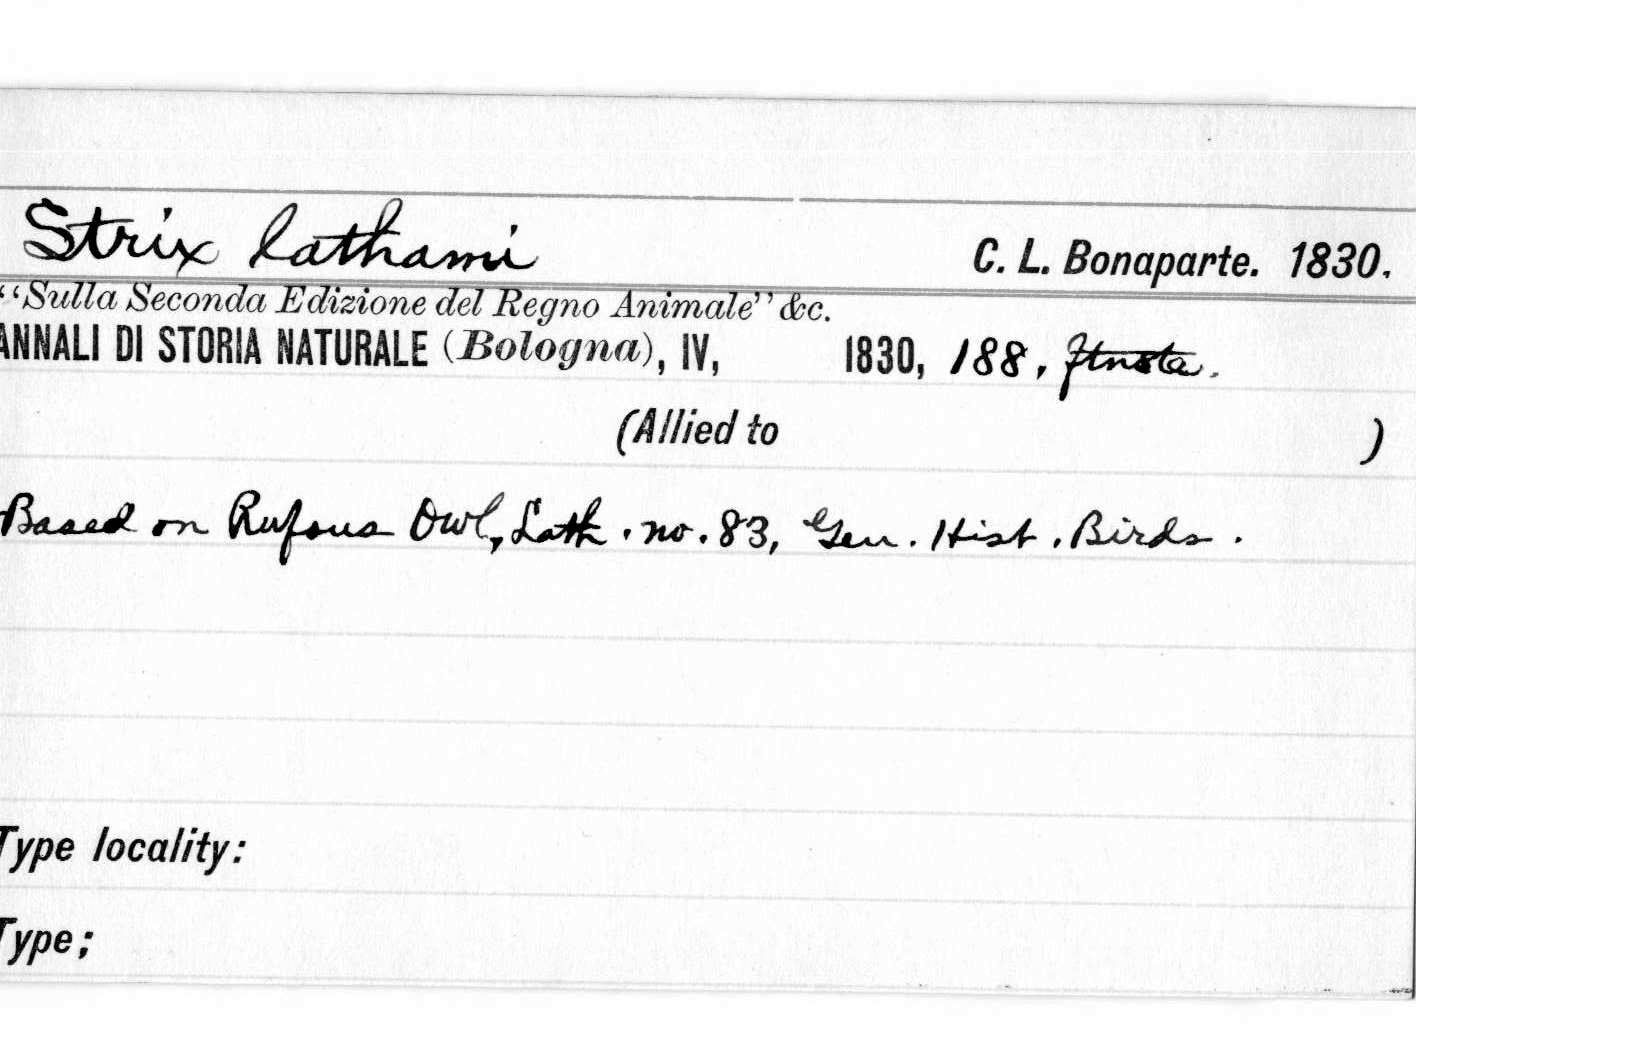 Strix lathami
C. L. Bonaparte. 1830.
“Sulla Seconda Edizione del Regno Animale” &c.
ANNALI DI STORIA NATURALE (Bologna), IV, 1830, 188, ftnote.
(Allied to )
Based on Rufous Owl, Lath. no. 83, Gen. Hist. Birds.
Type locality:
Type;